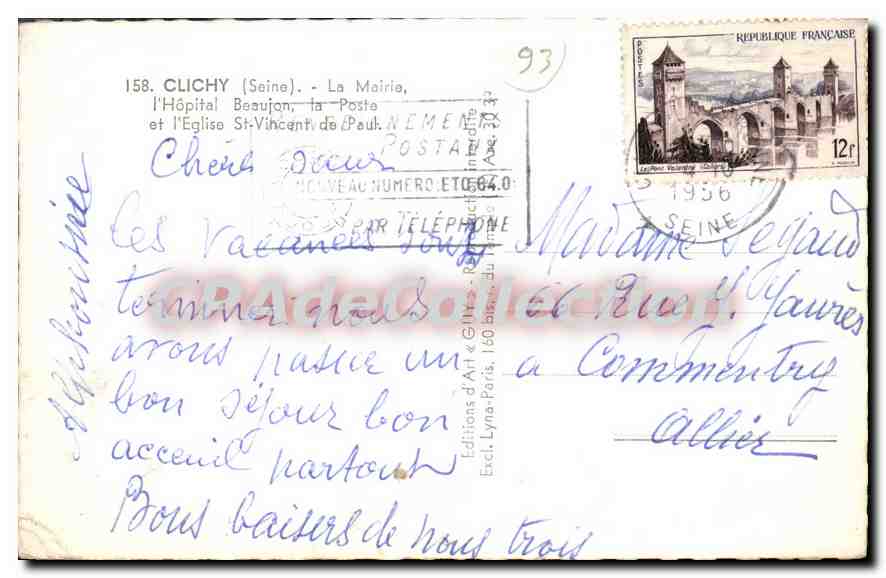 158. CLICHY (Seine). - La Mairie,
l'Hôpital Beaujon, la Poste
et l'Eglise St-Vincent de Paul.
93
POSTES
REPUBLIQUE FRANÇAISE
Le Pont Valentré (Cahors)
12f
1956
SEINE
NEMENT
POSTAL
NOUVEAU NUMERO ETO.64.0
PAR TÉLÉPHONE
Chère sœur
les vacances sont
terminer nous
avons passer un
bon séjour bon
acceuil partout
Bons baisers de nous trois
Alphonsine
Editions d'Art « GUY » - Reproduction interdite
Excl. Lyna-Paris, 160 bis, r. du
Madame Segaud
66 Rue J. Jaurès
a Commentry
Allier
CPAdeCollection